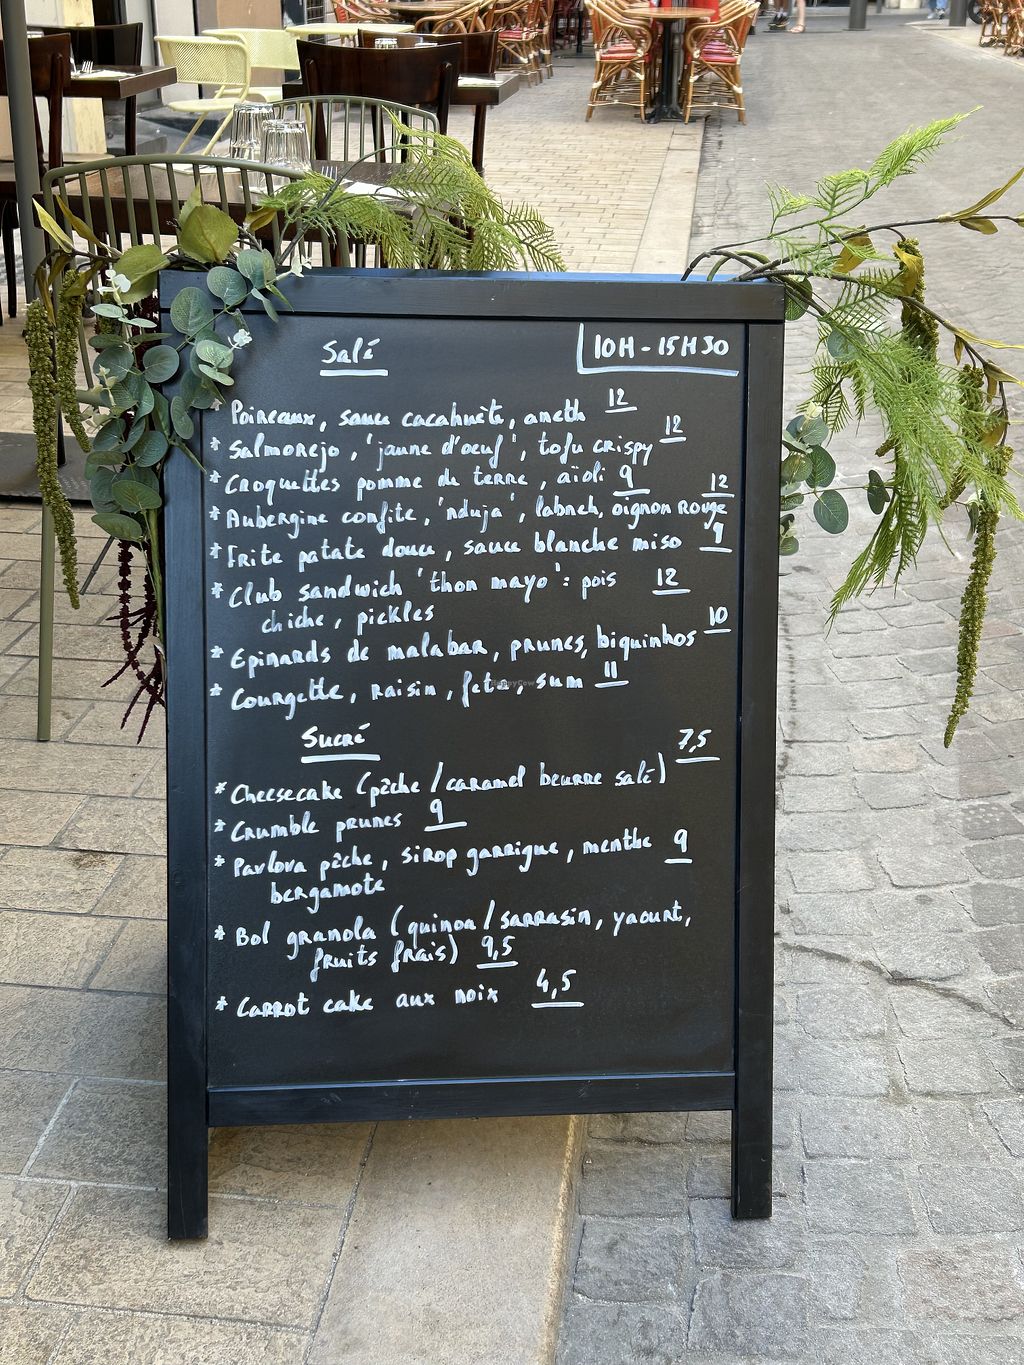 Salé
10H - 15H30
* Poireaux, sauce cacahuète, aneth 12
* Salmorejo, 'jaune d'oeuf', tofu crispy 12
* Croquettes pomme de terre, aïoli 9
* Aubergine confite, 'nduja', labneh, oignon rouge 12
* Frite patate douce, sauce blanche miso 9
* Club sandwich 'thon mayo': pois 12
chiche, pickles
* Epinards de malabar, prunes, biquinhos 10
* Courgette, raisin, feta, sum 11
HappyCow
Sucré
* Cheesecake (pêche/caramel beurre salé) 7,5
* Crumble prunes 9
* Pavlova pêche, sirop garrigue, menthe 9
bergamote
* Bol granola (quinoa/sarrasin, yaourt,
fruits frais) 9,5
* Carrot cake aux noix 4,5